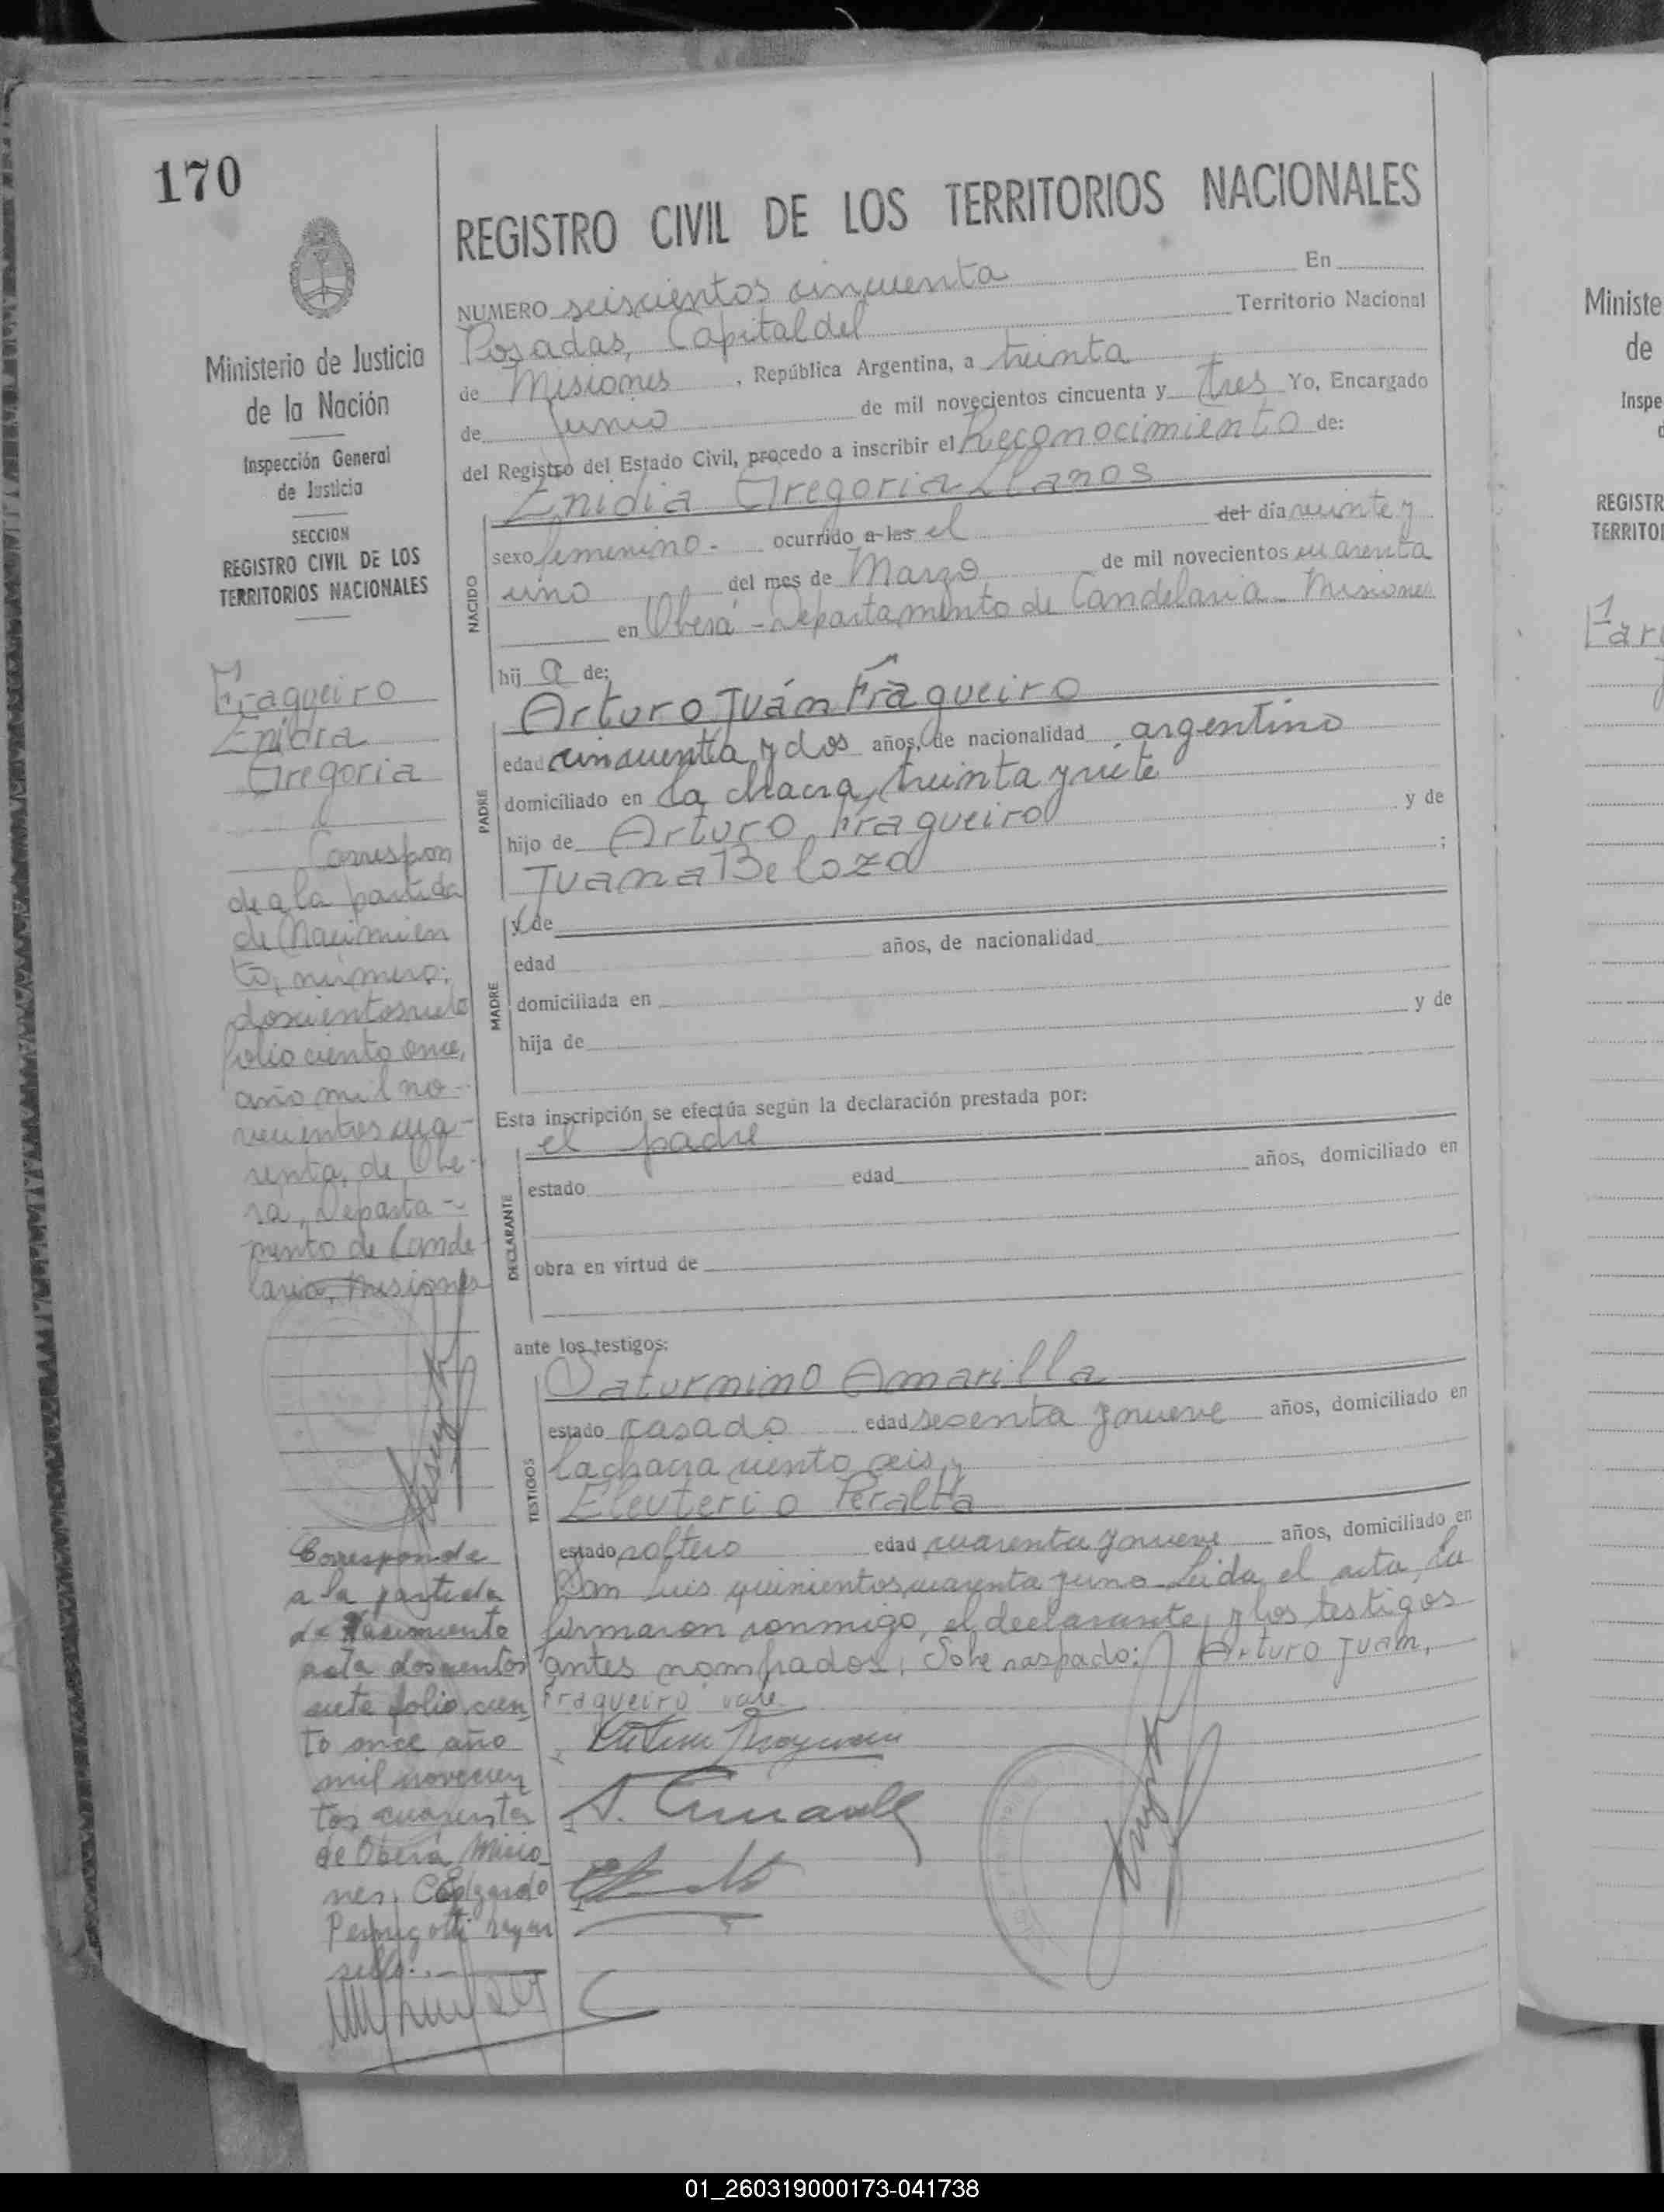 170
Ministerio de Justicia
de la Nación
Inspección General
de Justicia
SECCION
REGISTRO CIVIL DE LOS
TERRITORIOS NACIONALES
Fragueiro
Enidia
Gregoria
Correspon
de a la partida
de Nacimien
to, número:
doscientos siete
folio ciento once,
año mil no-
vecientos cua-
renta, de Obe-
ra, Departa-
mento de Cande
laria, Misiones
Corresponde
a la partida
de Nacimiento
acta doscientos
siete folio cien
to once año
mil novecien
tos cuarenta
de Oberá Misio
nes.
REGISTRO CIVIL DE LOS TERRITORIOS NACIONALES
NUMERO seiscientos cincuenta En
Posadas, Capital del Territorio Nacional
de Misiones, República Argentina, a treinta
de Junio de mil novecientos cincuenta y tres Yo, Encargado
del Registro del Estado Civil, procedo a inscribir el Reconocimiento de:
Enidia Gregoria Llanos
NACIDO
sexo femenino.- ocurrido a las el del día veinte y
uno del mes de Marzo de mil novecientos cuarenta
en Oberá - Departamento de Candelaria - Misiones
hij a de:
PADRE
Arturo Juán Fragueiro
edad cincuenta y dos años, de nacionalidad argentino
domiciliado en la chacra, treinta y siete
hijo de Arturo Fragueiro y de
Juana Beloza ;
MADRE
y de
edad años, de nacionalidad
domiciliada en
hija de y de
Esta inscripción se efectúa según la declaración prestada por:
DECLARANTE
el padre
estado edad años, domiciliado en
obra en virtud de
ante los testigos:
TESTIGOS
Saturnino Amarilla
estado casado edad sesenta y nueve años, domiciliado en
la chacra ciento seis, y
Eleuterio Peralta
estado soltero edad cuarenta y nueve años, domiciliado en
San Luis quinientos cuarenta y uno. Leida el acta, la
firmaron conmigo, el declarante y los testigos
antes nombrados. Sobre raspado: Arturo Juan,
Fragueiro vale
Ministe
de
Inspe
REGISTR
TERRITOI
01_260319000173-041738